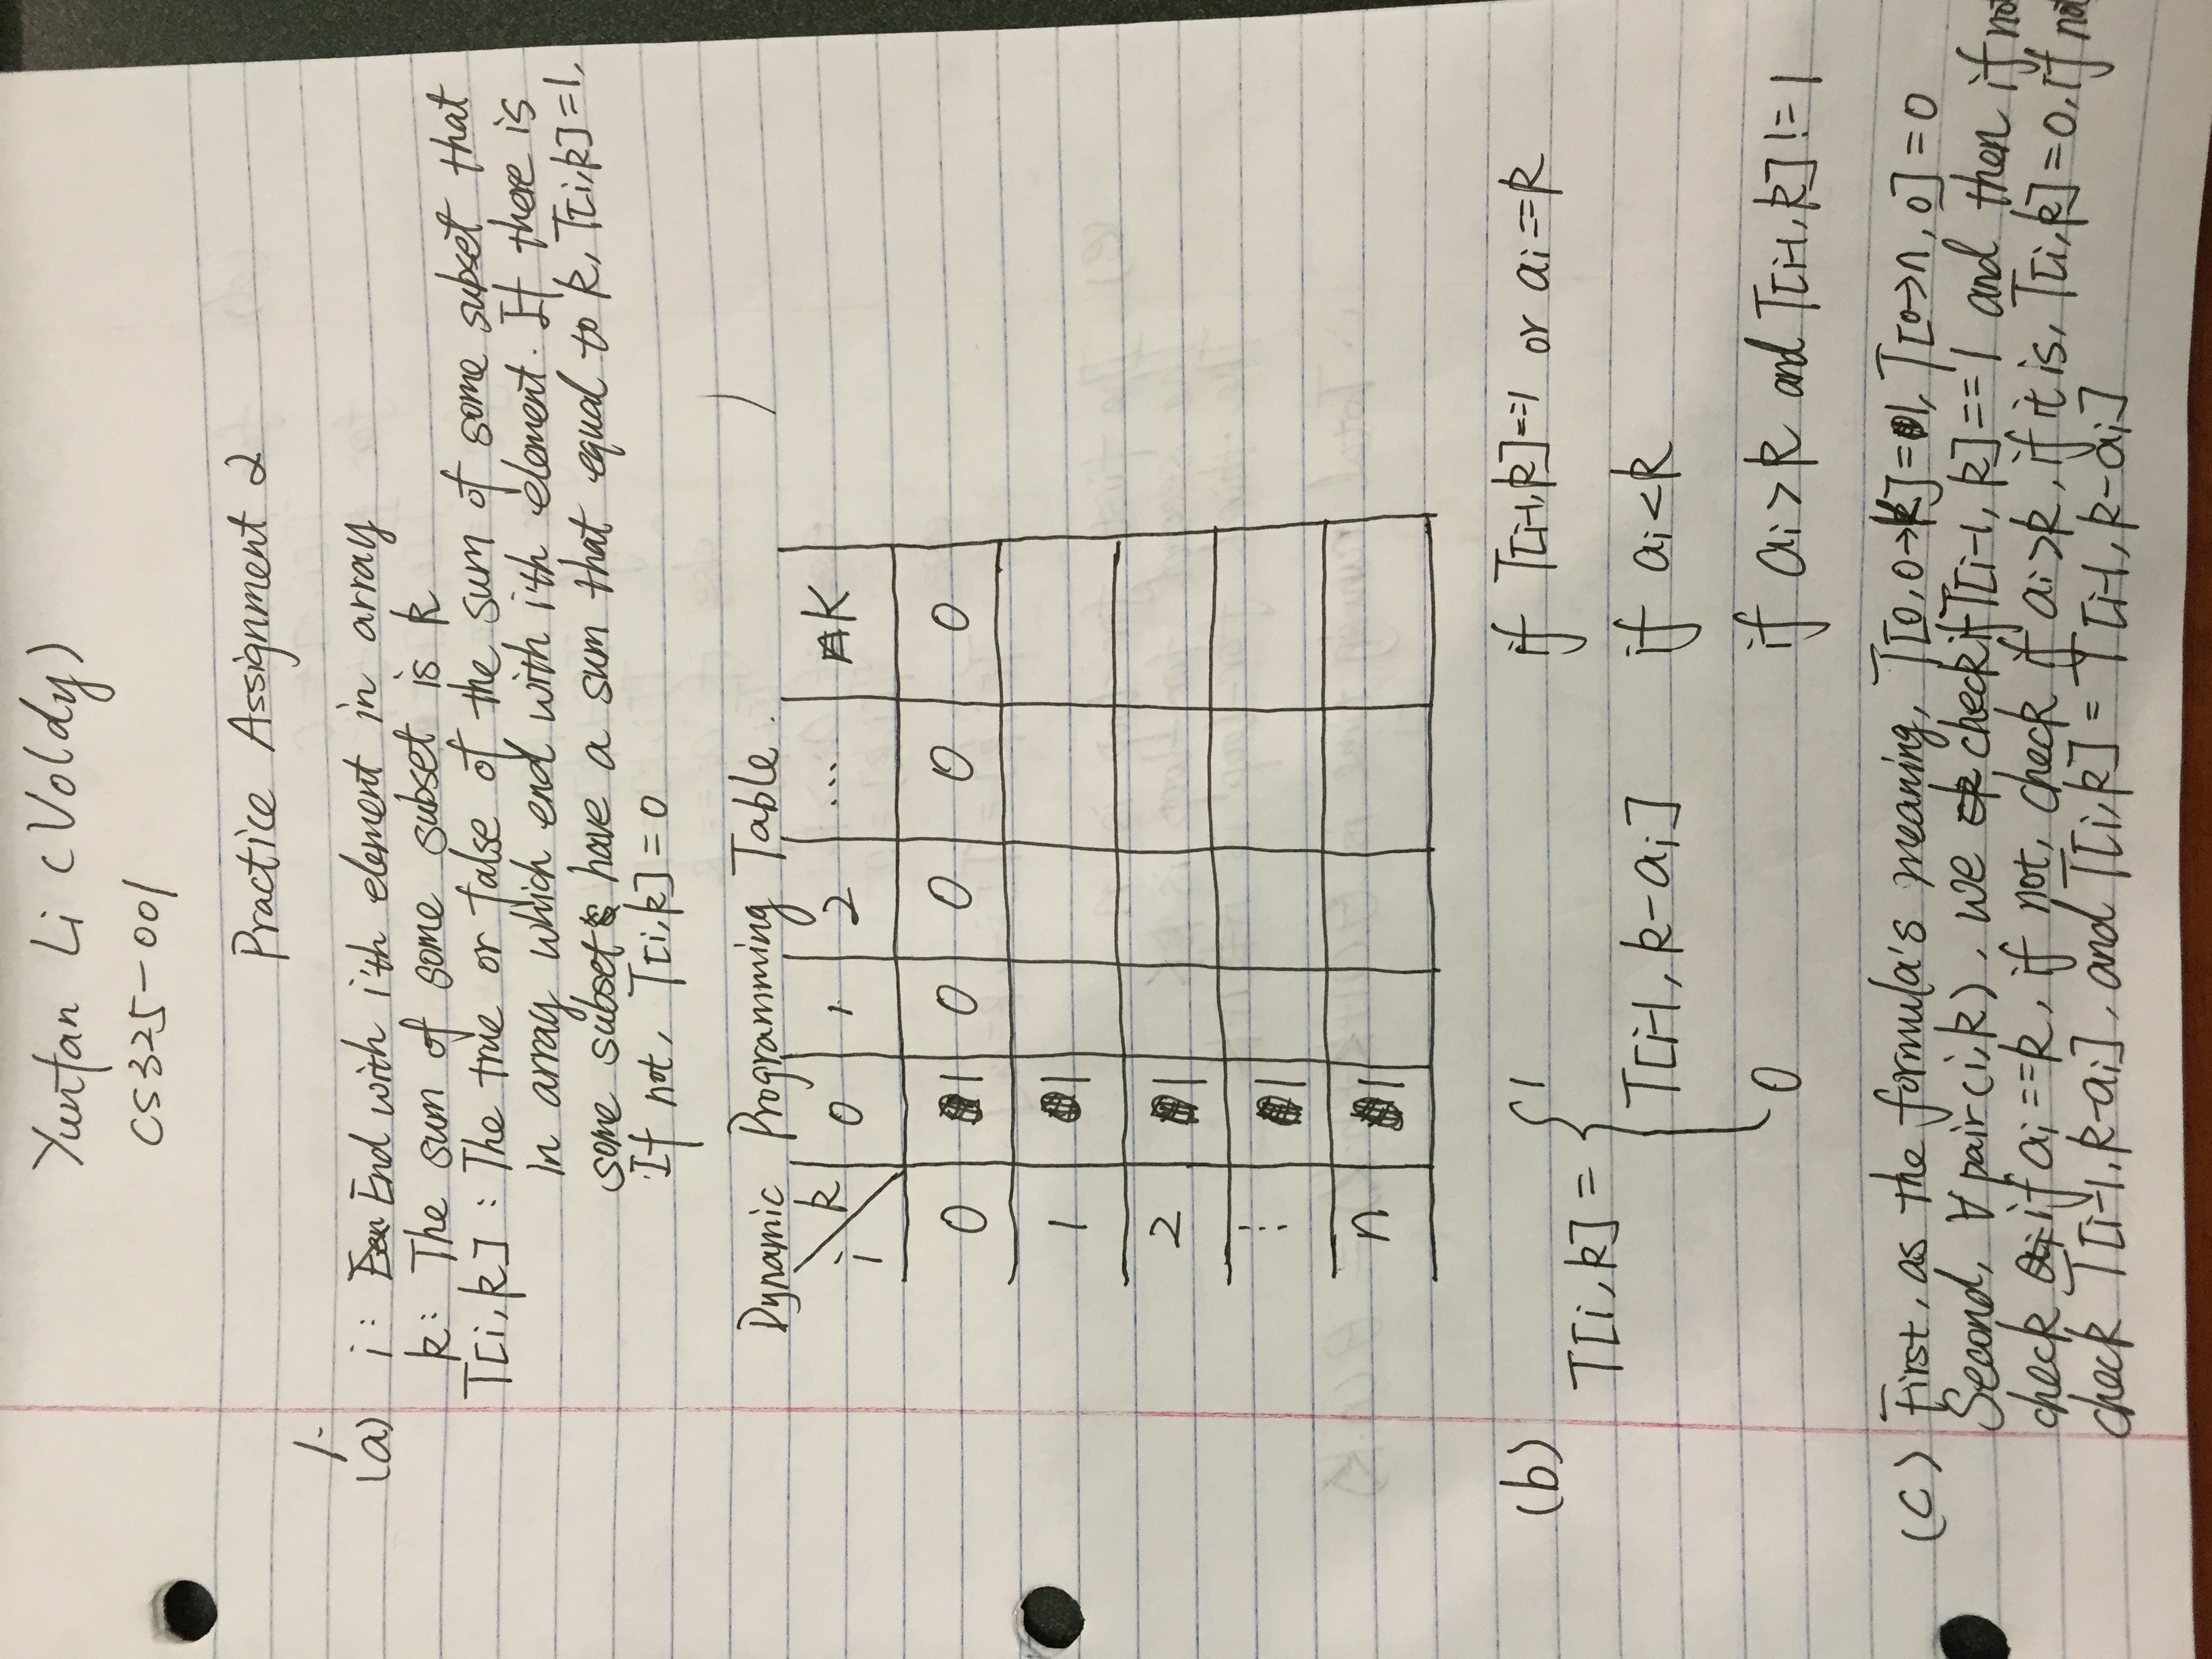 Yunfan Li (Voldy)
CS325-001
Practice Assignment 2
1.
(a) i: End with i'th element in array
k: The sum of some subset is k
T[i,k]: The true or false of the sum of some subset that
in array which end with ith element. If there is
some subset have a sum that equal to k, T[i,k]=1,
If not, T[i,k]=0
Dynamic Programming Table.
i\k 0 1 2 ... K
0 1 0 0 0 0
1 1
2 1
⋮ 1
n 1
(b)
T[i,k] = { 1 if T[i-1,k]==1 or ai==k
T[i-1, k-ai] if ai<k
0 if ai>k and T[i-1,k]!=1
(c) First, as the formula's meaning, T[0,0→k]=1, T[0→n,0]=0
Second, ∀ pair(i,k), we check if T[i-1, k]==1 and then if not
check if ai==k, if not, check if ai>k, if it is, T[i,k]=0, if not
check T[i-1,k-ai], and T[i,k] = T[i-1, k-ai]